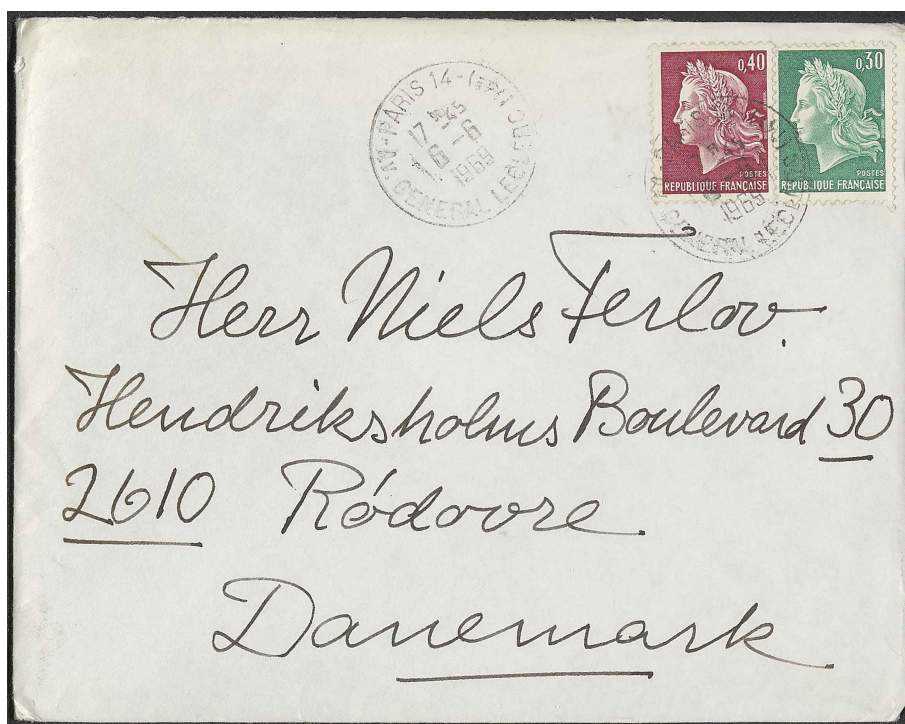 PARIS 14 - AV. GENERAL LECLERC (14E)
17H45
6-6
1969
0,40
POSTES
REPUBLIQUE FRANÇAISE
0,30
POSTES
REPUBLIQUE FRANÇAISE
1969
GENERAL LECL
Herr Niels Ferlov.
Hendriksholms Boulevard 30
2610 Ródovre
Danemark